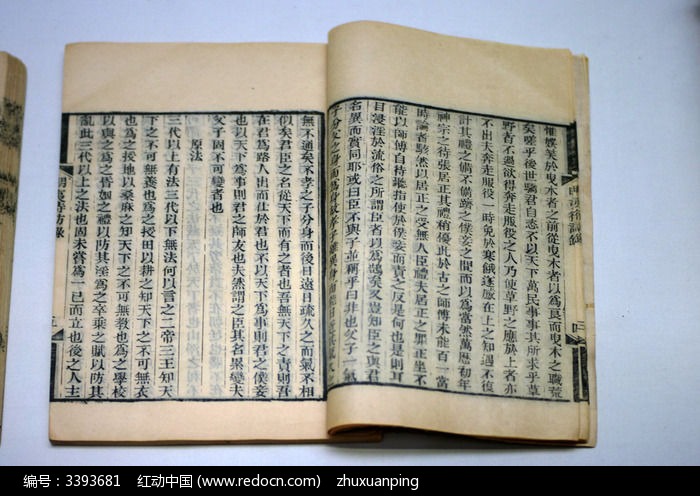 惟娛笑於曳木者之前從曳木者以為良而曳木之職荒
矣嗟乎後世驕君自恣不以天下萬民事事其所求乎草
野者不過欲得奔走服役之人乃使草野之應於上者亦
不出夫奔走服役一時免於寒餓遂感在上之知遇不復
計其禮之備不備躋之僕妾之間而以為當然萬曆初年
神宗之待張居正其禮稍優此於古之師傅未能百一當
時論者駭然以居正之受無人臣禮夫居正之罪正坐不
能以師傅自待聽指使於僕妾而責之反是何也是則耳
目浸淫於流俗之所謂臣者以為鵠矣又豈知臣之與君
名異而實同耶或曰臣不與子並稱乎曰非也父子一氣
子分父之身而為身故孝子雖異身而能日近其氣久之
無不通矣不孝之子分身而後日遠日疏久之而氣不相
似矣君臣之名從天下而有之者也吾無天下之責則吾
在君為路人出而仕於君也不以天下為事則君之僕妾
也以天下為事則君之師友也夫然謂之臣其名累變夫
父子固不可變者也
原法
三代以上有法三代以下無法何以言之二帝三王知天
下之不可無養也為之授田以耕之知天下之不可無衣
也為之授地以桑麻之知天下之不可無教也為之學校
以興之為之婚姻之禮以防其淫為之卒乘之賦以防其
亂此三代以上之法也固未嘗為一己而立也後之人主
明夷待訪錄
编号：3393681 红动中国 (www.redocn.com) zhuxuanping